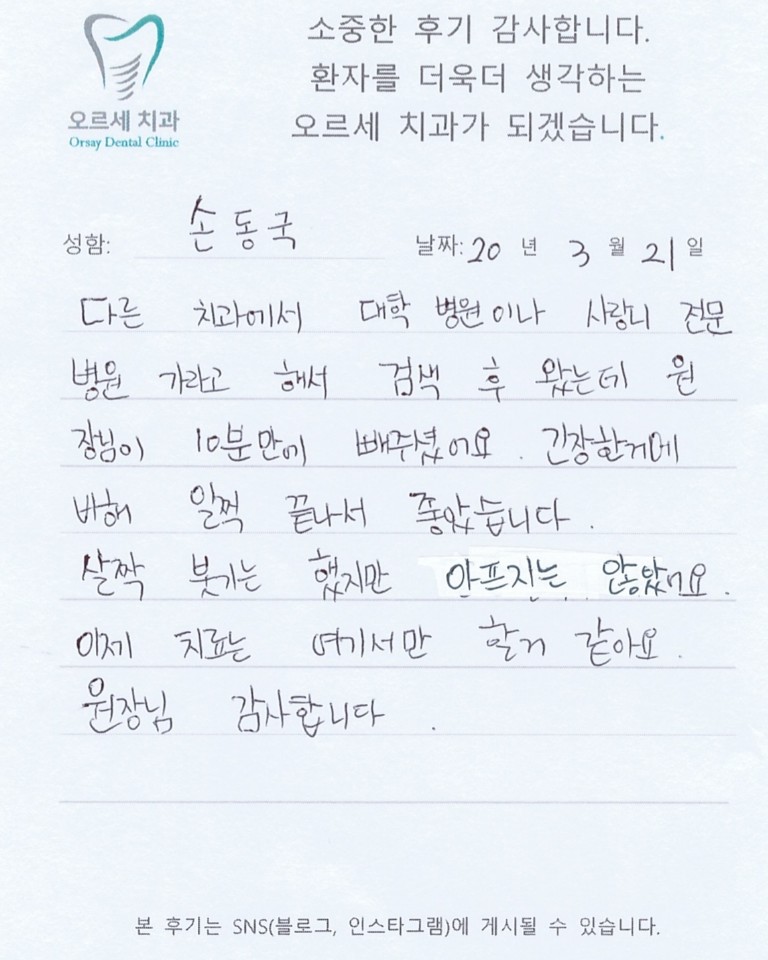 소중한 후기 감사합니다.
환자를 더욱더 생각하는
오르세 치과가 되겠습니다.
오르세 치과
Orsay Dental Clinic
성함: 손동국 날짜: 20 년 3 월 21 일
다른 치과에서 대학 병원이나 사랑니 전문
병원 가라고 해서 검색 후 왔는데 원
장님이 10분만에 빼주셨어요. 긴장한거에
비해 일찍 끝나서 좋았습니다.
살짝 붓기는 했지만 아프지는 않았어요.
이제 치료는 여기서만 할거 같아요.
원장님 감사합니다.
본 후기는 SNS(블로그, 인스타그램)에 게시될 수 있습니다.